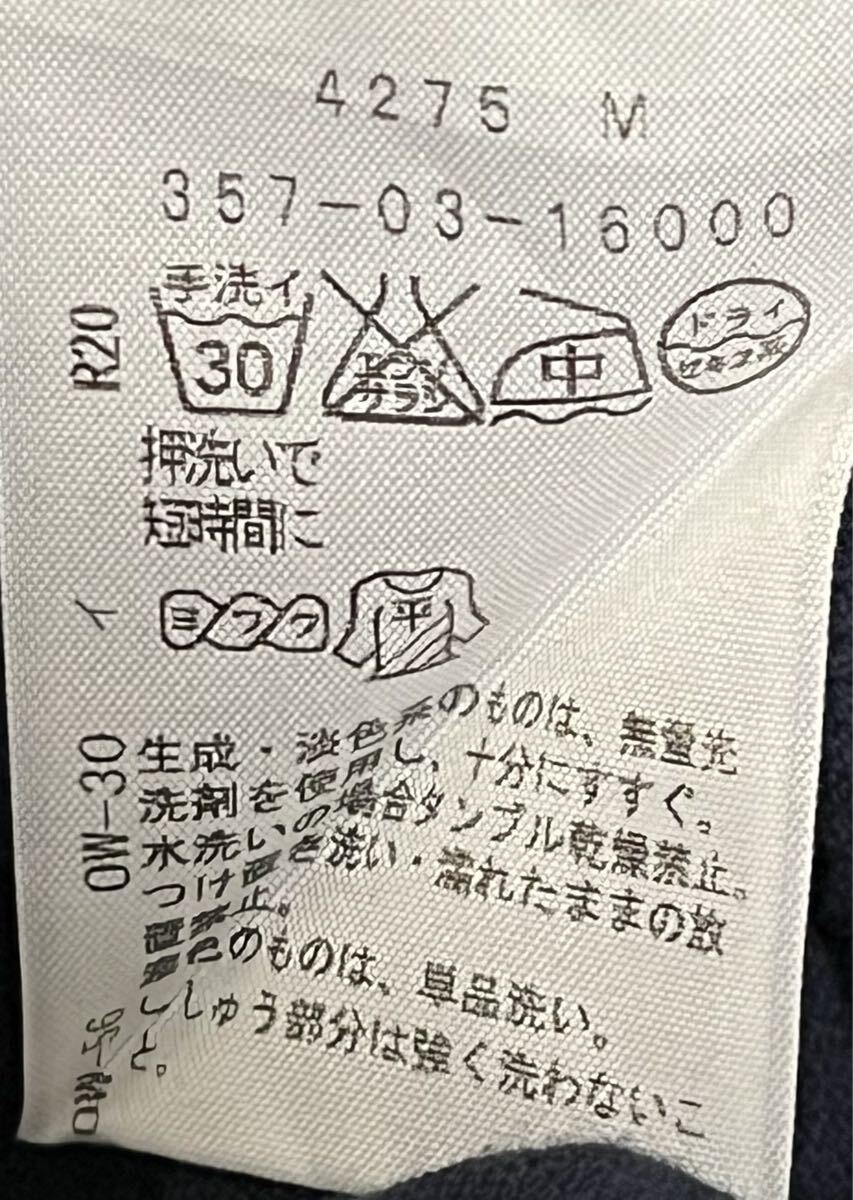 4275 M
357-03-16000
R20
手洗イ
30
エンソ
サラシ
中
ドライ
セキユ系
押洗いで
短時間に
イ
ヨワク
平
OW-30
生成・淡色系のものは、無蛍光
洗剤を使用し、十分にすすぐ。
水洗いの場合タンブル乾燥禁止。
つけ置き洗い・濡れたままの放
置禁止。
濃色のものは、単品洗い。
ししゅう部分は強く洗わないこ
と。